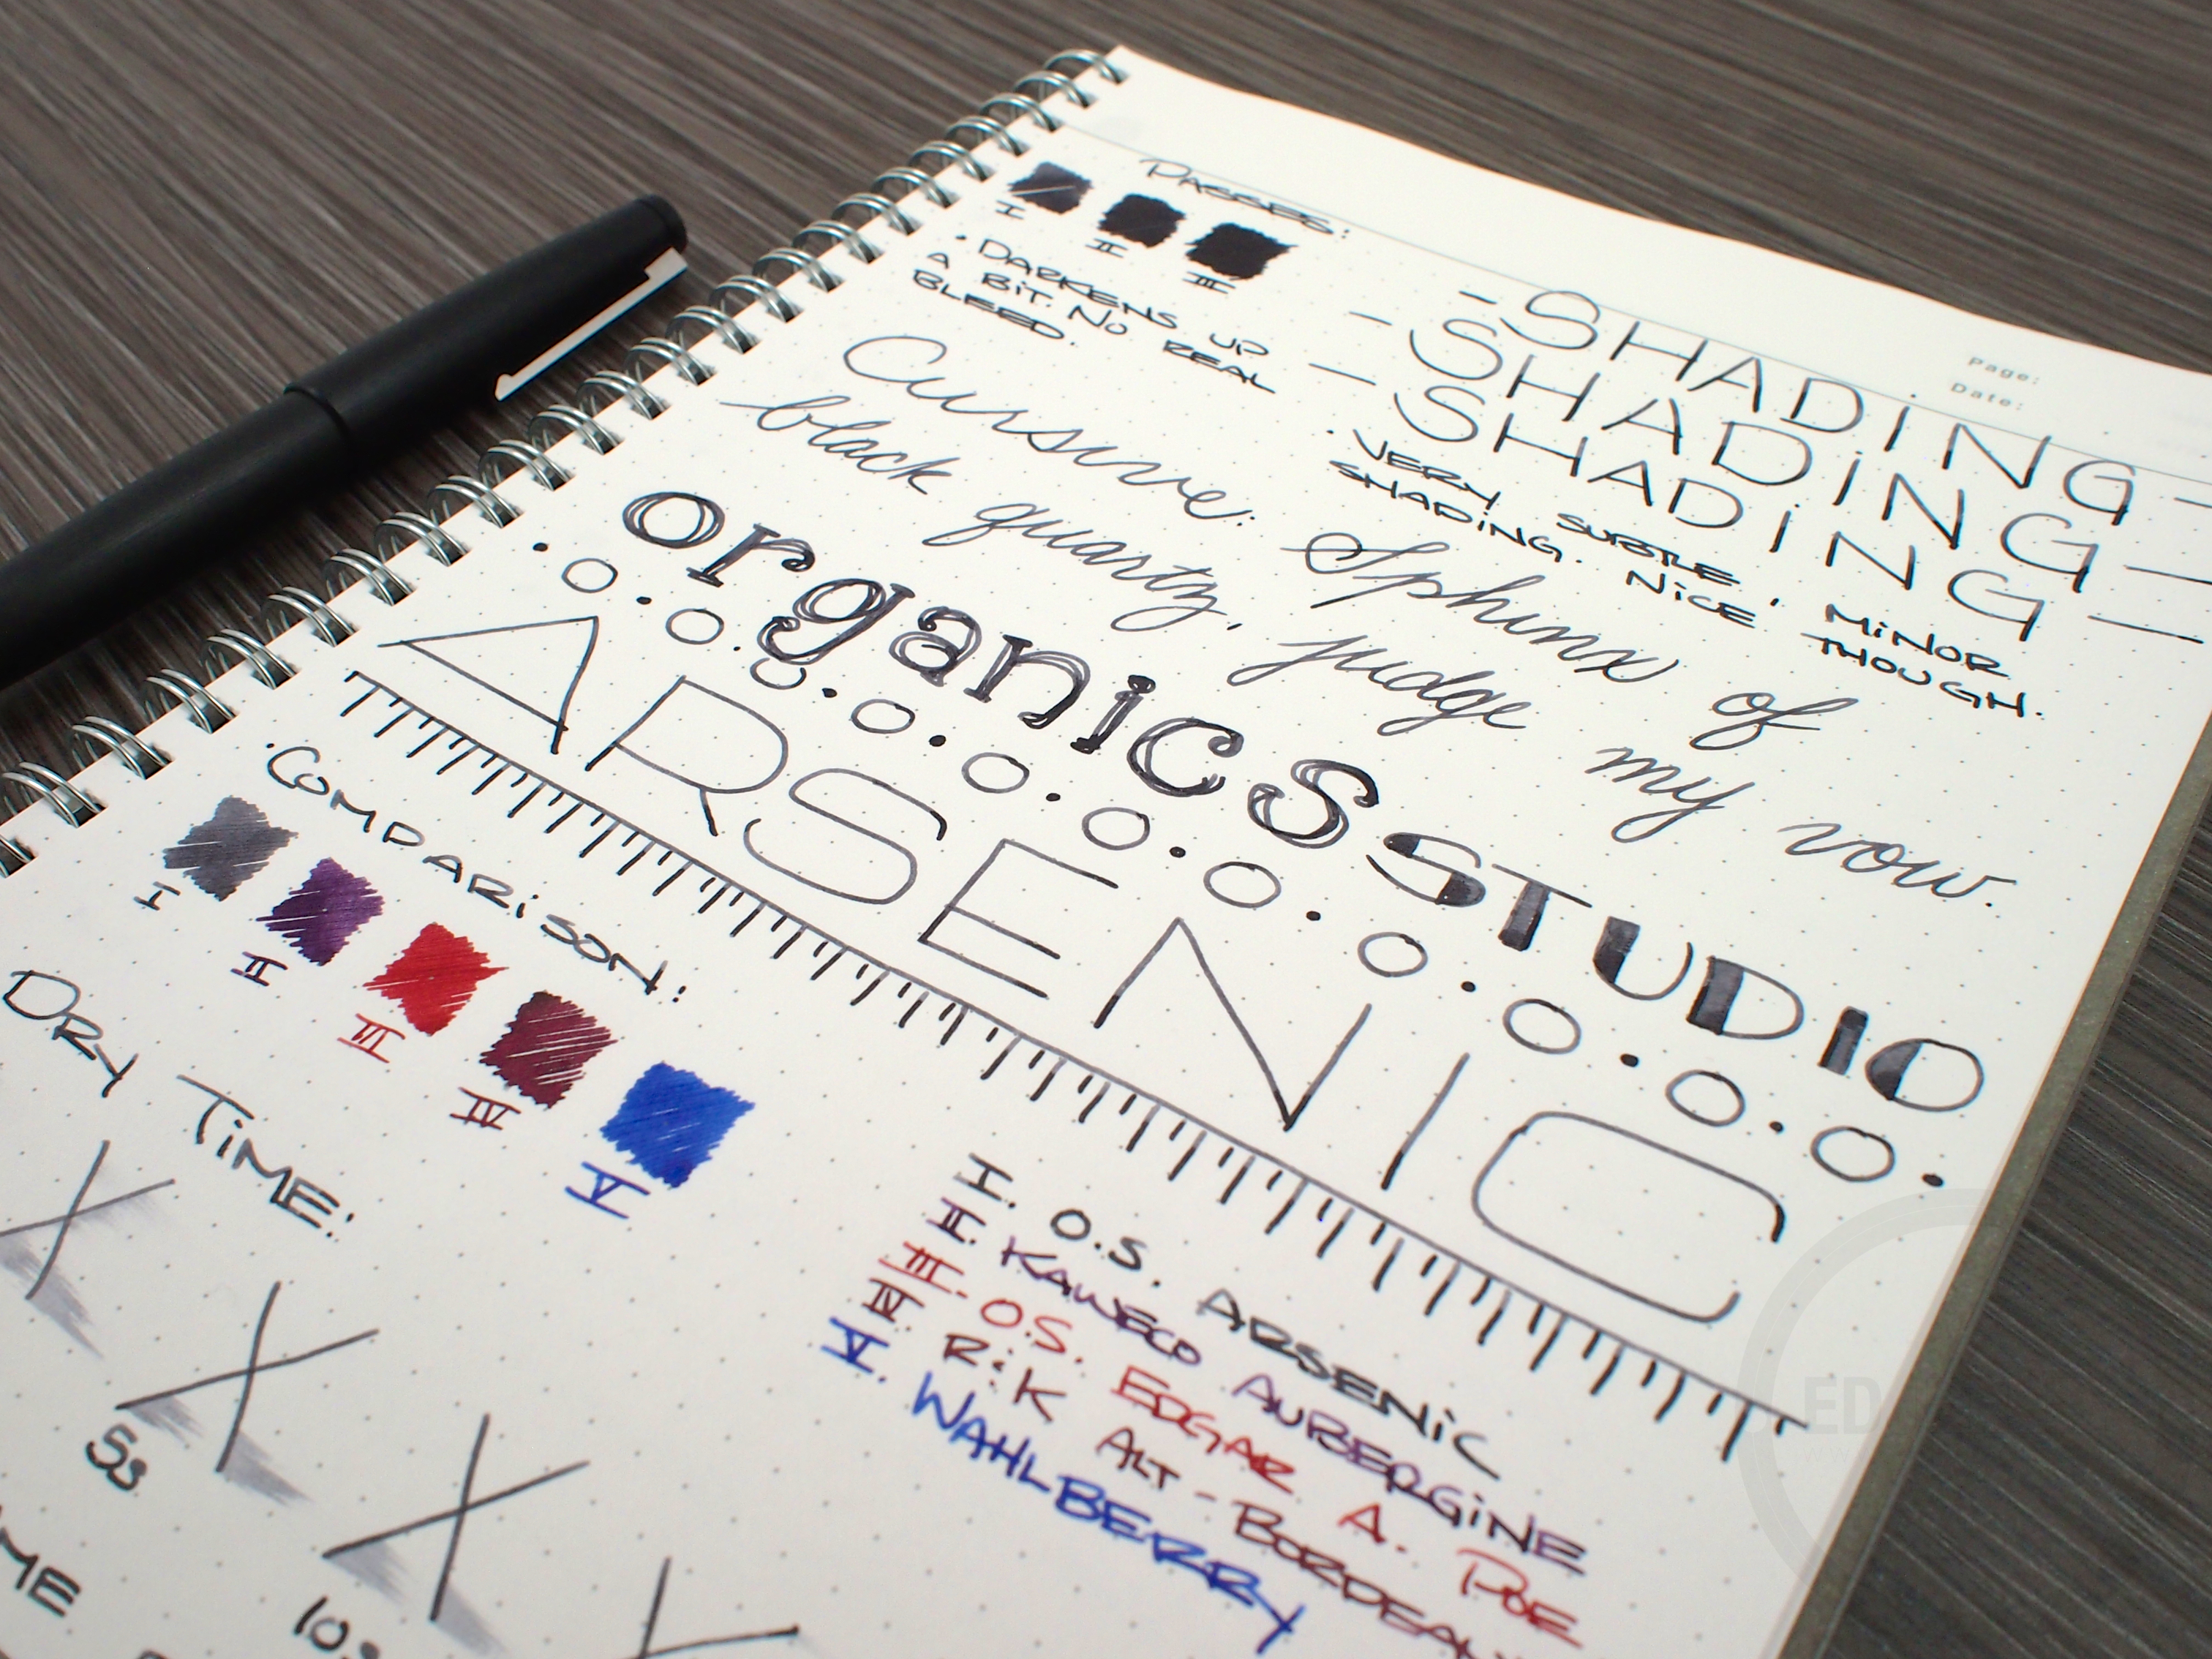 Page:
Date:
PASSES:
I II III
• DARKENS UP
A BIT. NO REAL
BLEED.
-SHADING-
-SHADING-
-SHADING-
• VERY SUBTLE, MINOR
SHADING. NICE THOUGH.
Cursive: Sphinx of
black quartz, judge my vow.
organics STUDIO
ARSENIC
• COMPARISON:
I II III IV V
I. O.S. ARSENIC
II. KAWECO AUBERGINE
III. O.S. EDGAR A. POE
IV. R:K ALT-BORDEAUX
V. WAHLBERRY
DRY TIME:
5s
10s